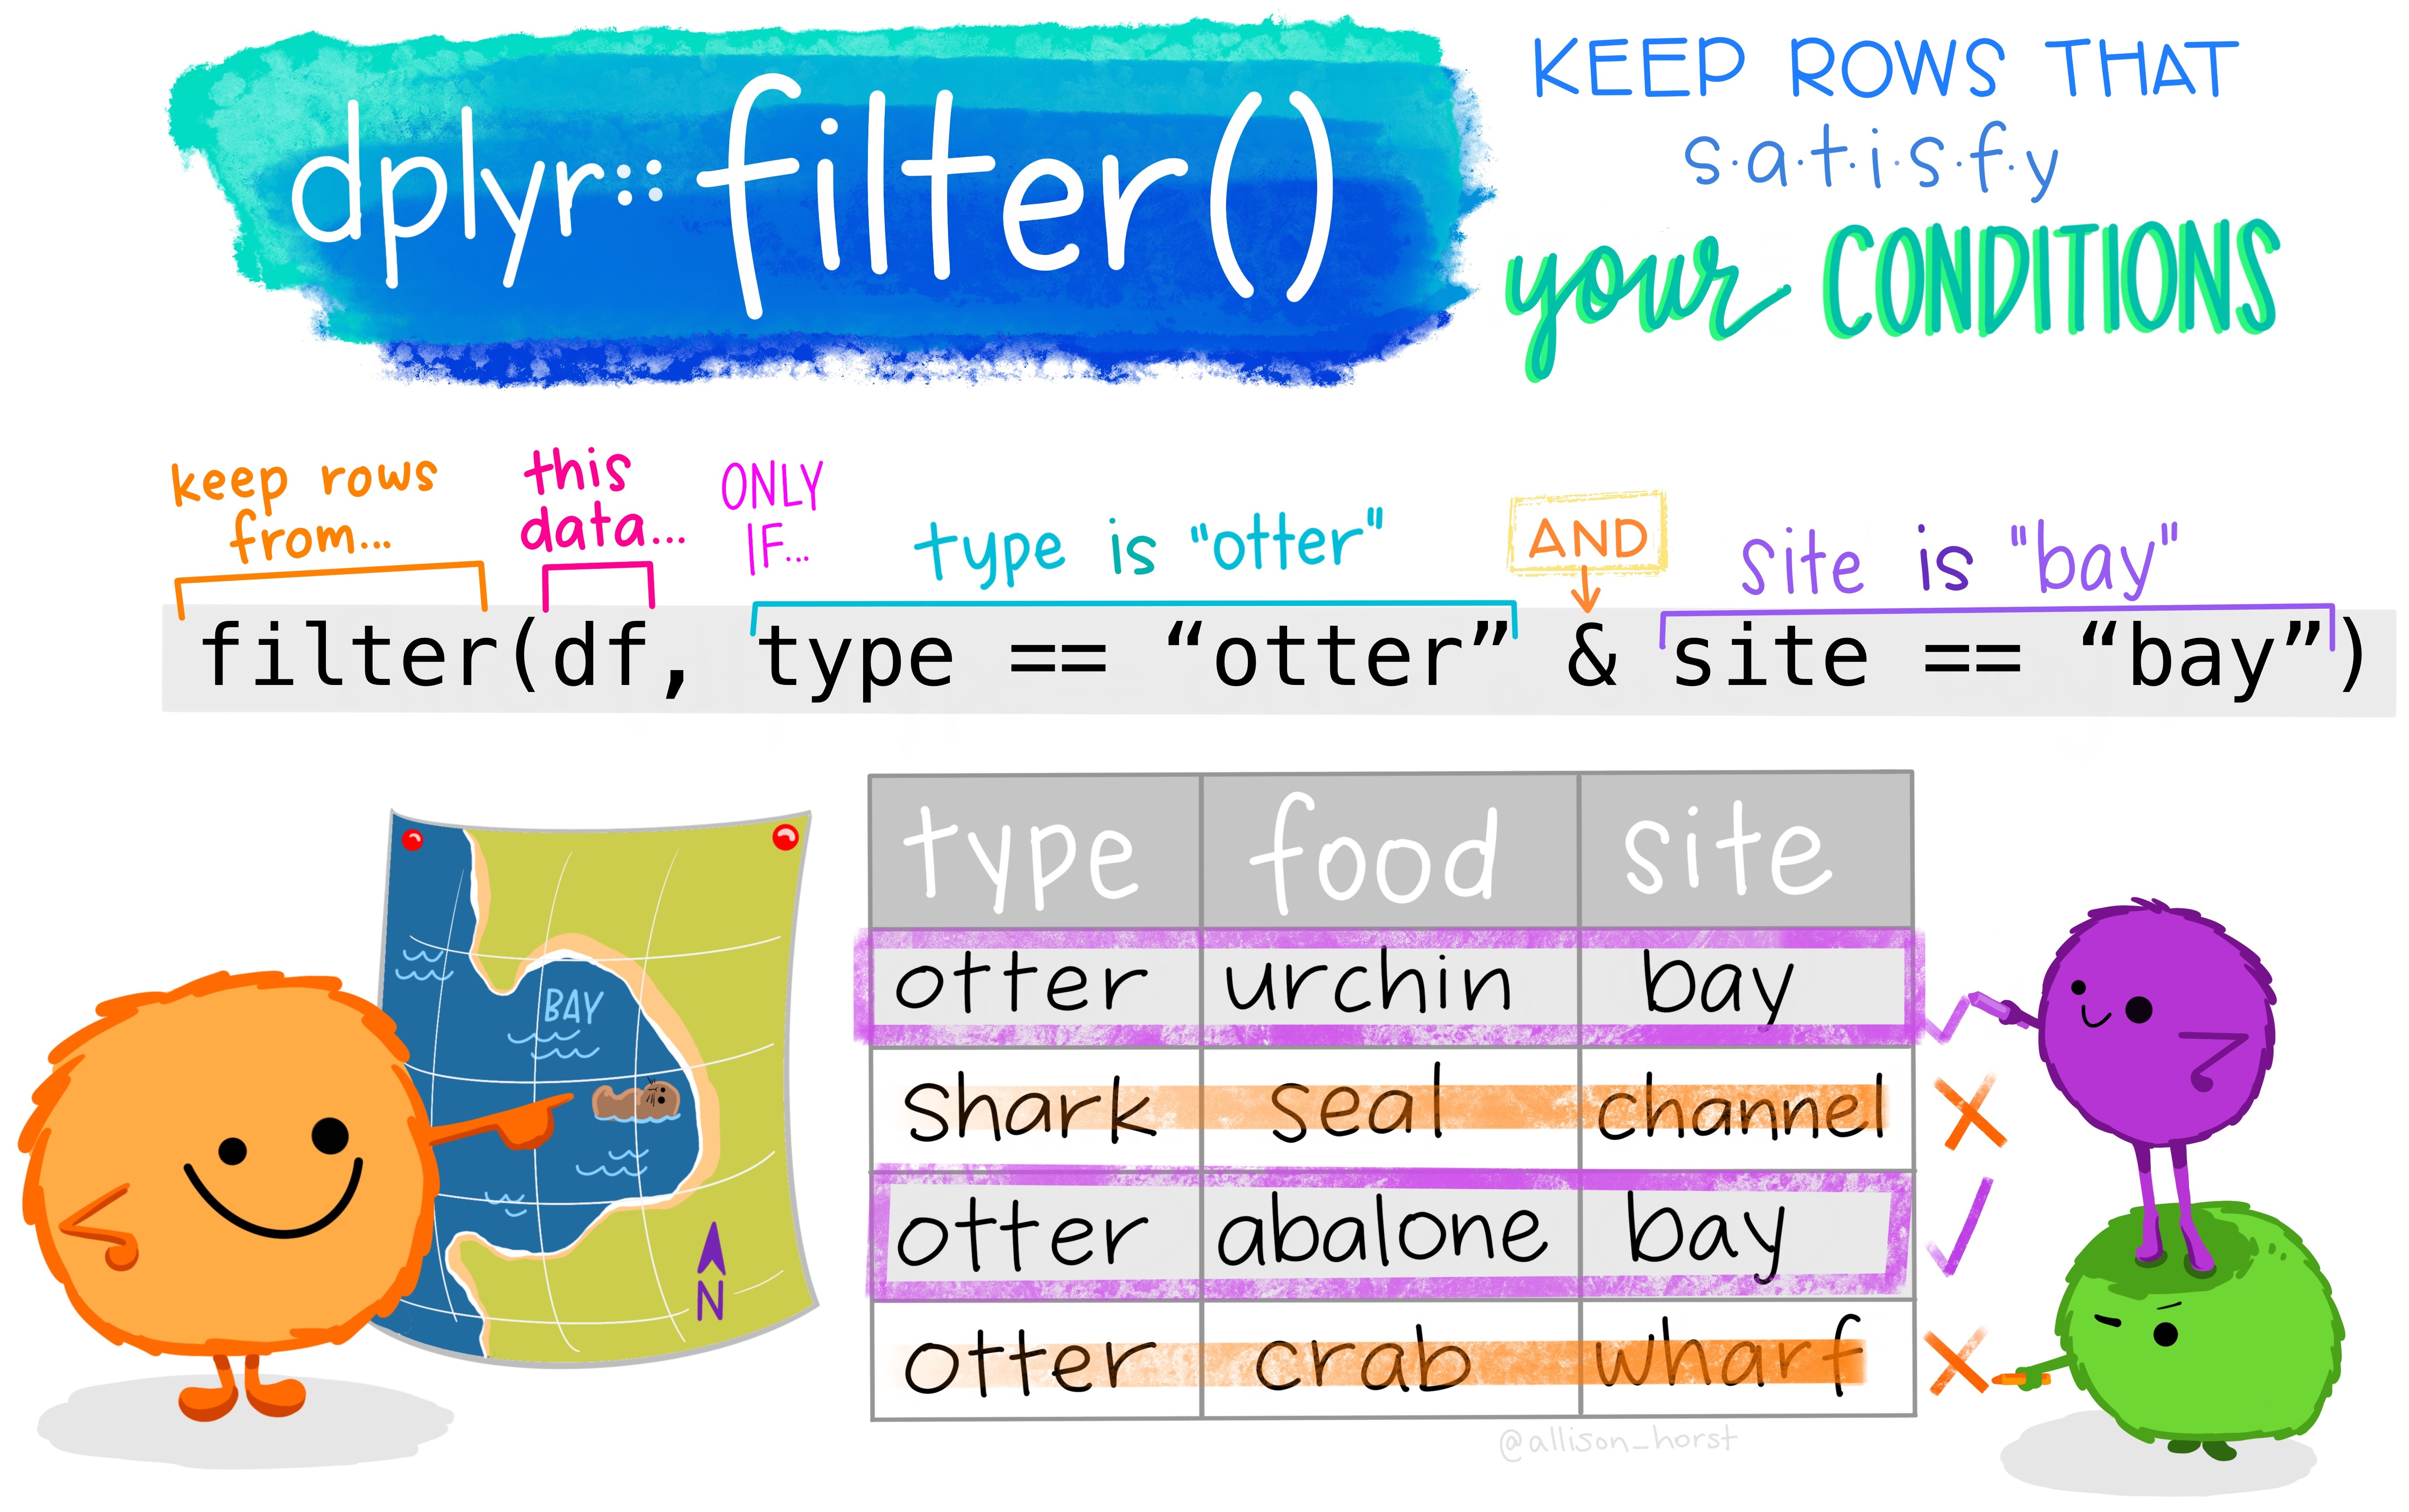 dplyr::filter()
KEEP ROWS THAT
s·a·t·i·s·f·y
your CONDITIONS
keep rows
from...
this
data...
ONLY
IF...
type is "otter"
AND
site is "bay"
filter(df, type == “otter” & site == “bay”)
type food site
otter urchin bay
shark seal channel
otter abalone bay
otter crab wharf
BAY
N
@allison_horst